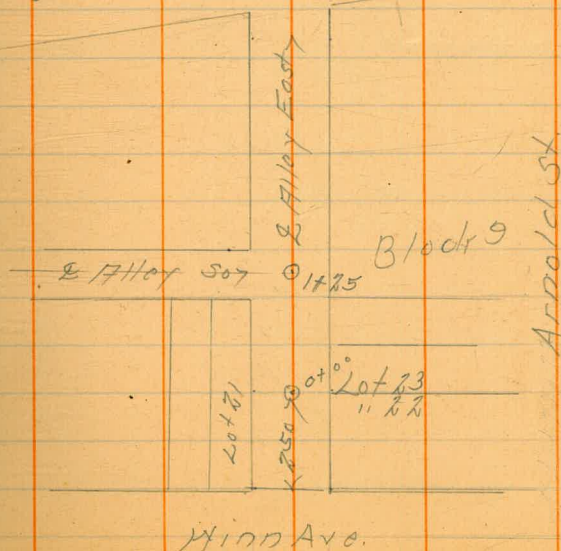 ℄ Alley East
Block 9
℄ Alley So
1+25
Arnold St
0+00
Lot 23
" 22
Lot 21
Minn Ave.